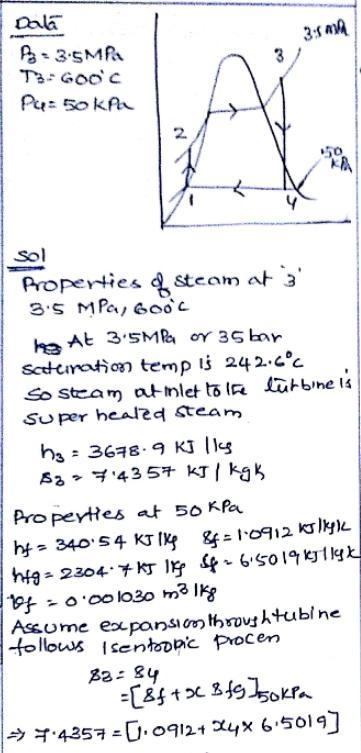 Data
P3 = 3.5MPa
T3 = 600°C
P4 = 50 kPa
3.5 MPa
3
2
50 kPa
1
4
Sol
Properties of steam at '3'
3.5 MPa, 600°C
At 3.5MPa or 35 bar
saturation temp is 242.6°C
So steam at inlet to the turbine is
super heated steam
h3 = 3678.9 KJ/kg
s3 = 7.4357 KJ/kgk
Properties at 50 KPa
hf = 340.54 KJ/kg sf = 1.0912 KJ/kgk
hfg = 2304.7 KJ/kg sf = 6.5019 KJ/kgk
vf = 0.001030 m3/kg
Assume expansion through tubine
follows Isentropic procen
s3 = s4
= [sf + x sfg]50kPa
⇒ 7.4357 = [1.0912 + x4 × 6.5019]